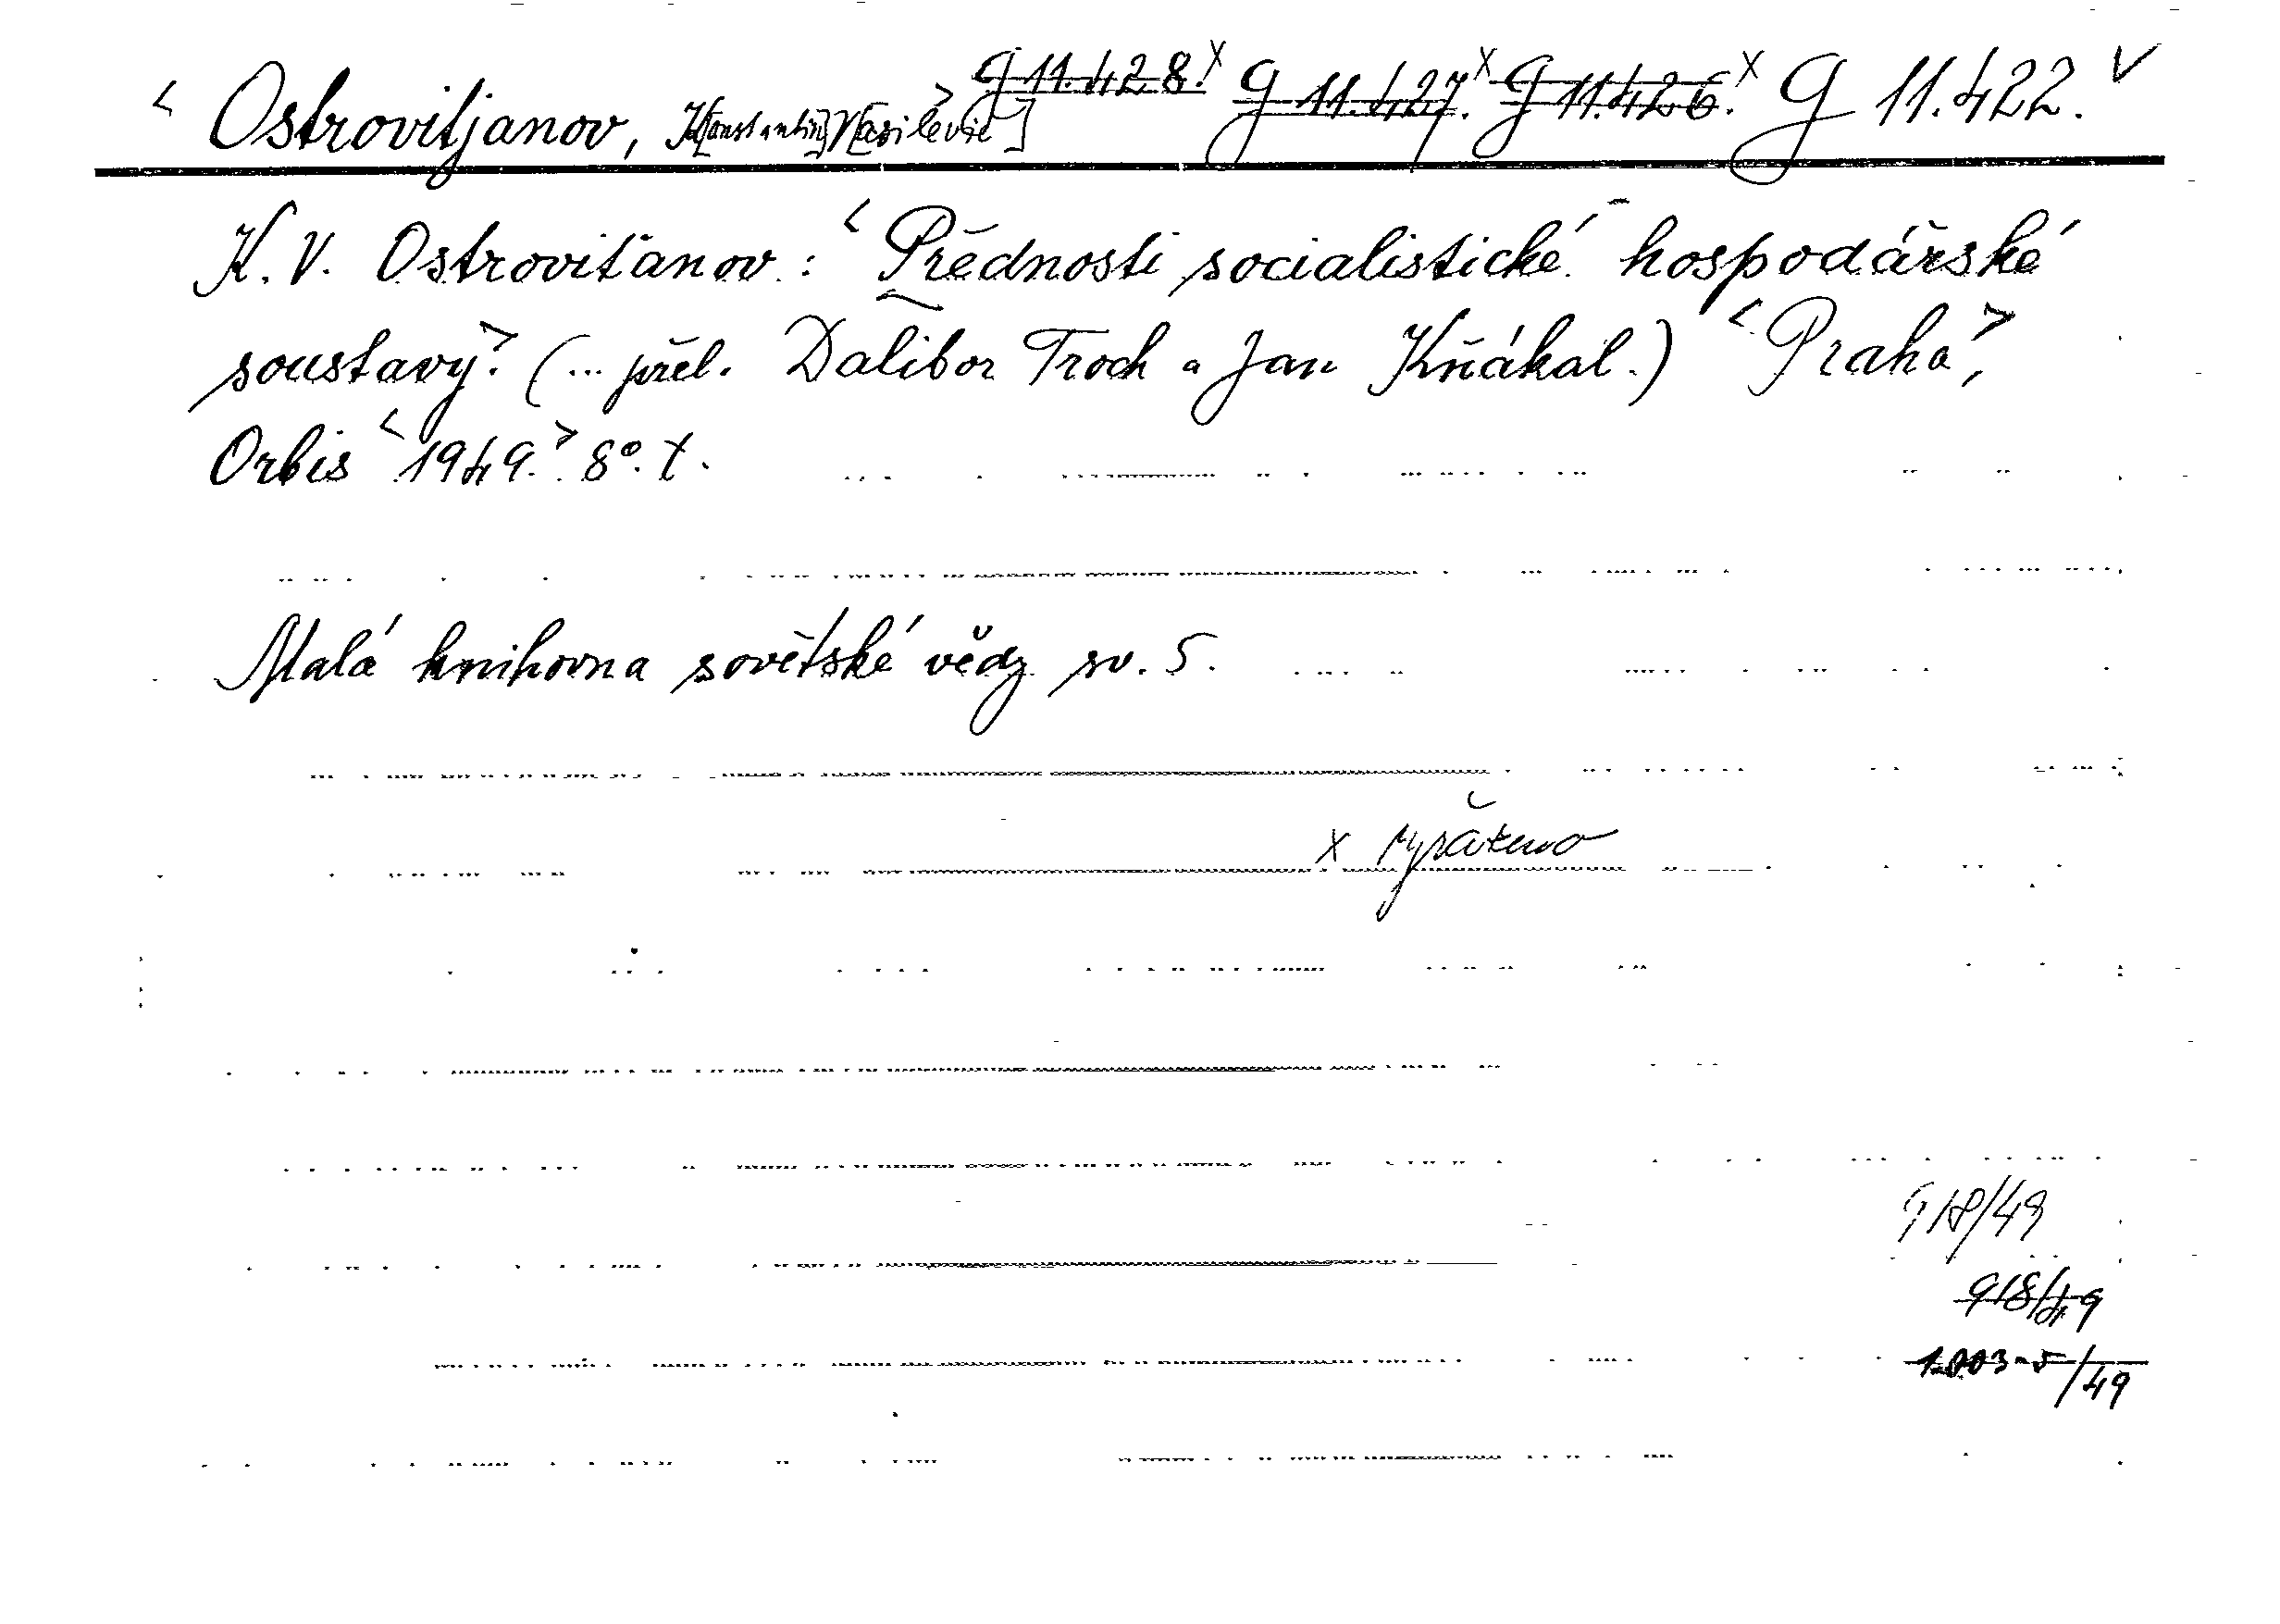 < Ostrovitjanov, K[onstantin] V[asilevič]> g 11.428.x g 11.427.x g 11.426.x g 11.422. v
K. V. Ostroviťanov: <Přednosti socialistické hospodářské
soustavy.> (... přel. Dalibor Troch a Jan Kňákal.) <Praha>,
Orbis <1949.> 8°. t.
Malá knihovna sovětské vědy sv. 5.
x vyřazeno
918/49
918/49
1.003-5/49